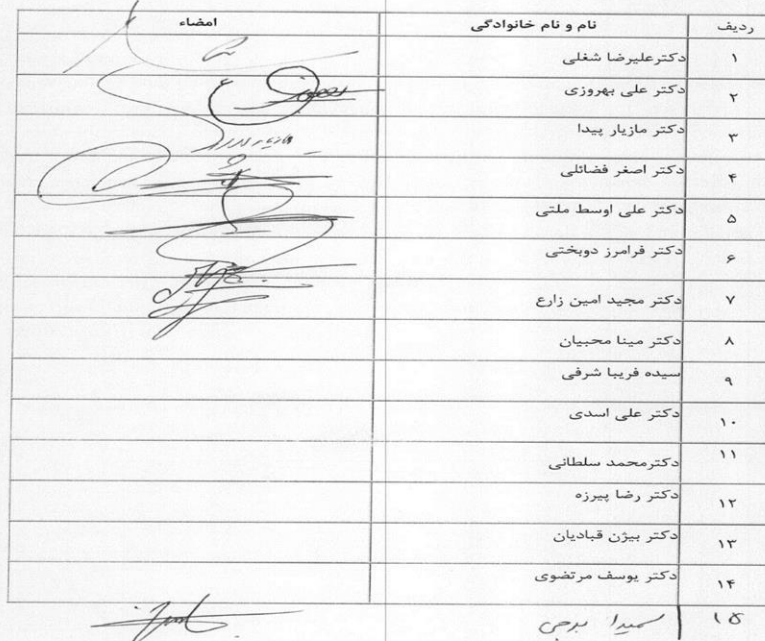 ردیف نام و نام خانوادگی امضاء
۱ دکترعلیرضا شغلی
۲ دکتر علی بهروزی
۳ دکتر مازیار پیدا
۴ دکتر اصغر فضائلی
۵ دکتر علی اوسط ملتی
۶ دکتر فرامرز دوبختی
۷ دکتر مجید امین زارع
۸ دکتر مینا محبیان
۹ سیده فریبا شرفی
۱۰ دکتر علی اسدی
۱۱ دکترمحمد سلطانی
۱۲ دکتر رضا پیرزه
۱۳ دکتر بیژن قبادیان
۱۴ دکتر یوسف مرتضوی
۱۵